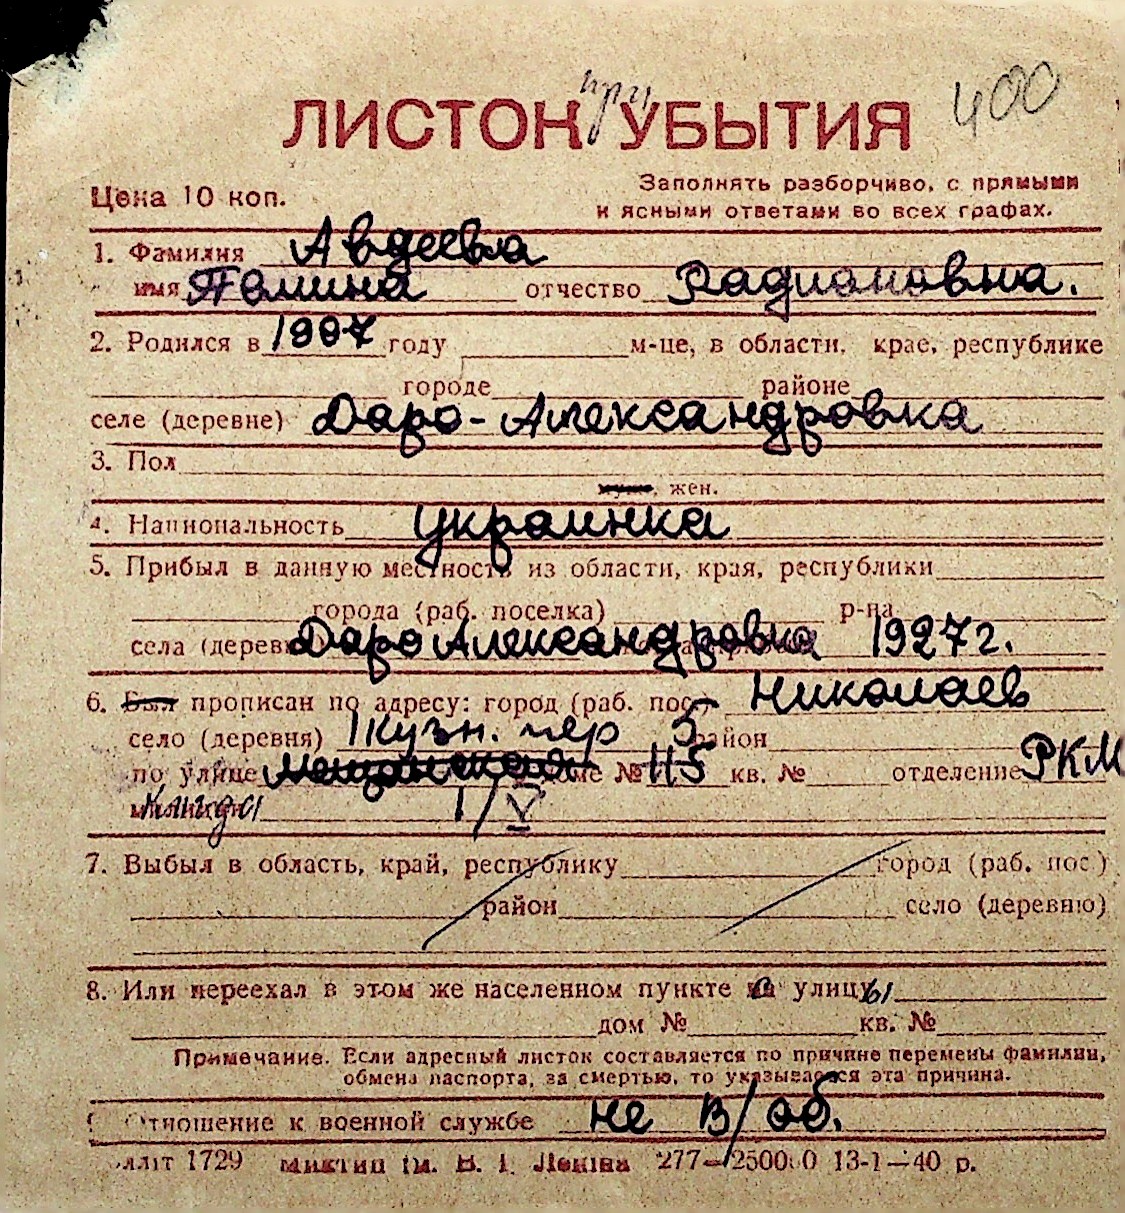 при 400
ЛИСТОК УБЫТИЯ
Цена 10 коп.
Заполнять разборчиво, с прямыми
и ясными ответами во всех графах.
1. Фамилия Авдеева
имя Полина отчество Радионовна.
2. Родился в 1907 году м-це, в области, крае, республике
городе районе
селе (деревне) Даро-Александровка
3. Пол
муж., жен.
4. Национальность Украинка
5. Прибыл в данную местность из области, края, республики
города (раб. поселка) р-на
села (дерев Даро Александровка 1927 г.
6. Был прописан по адресу: город (раб. пос Николаев
село (деревня) 1 кузн. пер 5 район
по улице доме № 115 кв. № отделение РКМ
1/V
7. Выбыл в область, край, республику город (раб. пос.)
район село (деревню)
8. Или переехал в этом же населенном пункте с улицы
дом № кв. №
Примечание. Если адресный листок составляется по причине перемены фамилии,
обмена паспорта, за смертью, то указывается эта причина.
Отношение к военной службе не в/об.
1729 им. В. И. Ленина 277—250000 13-1—40 р.